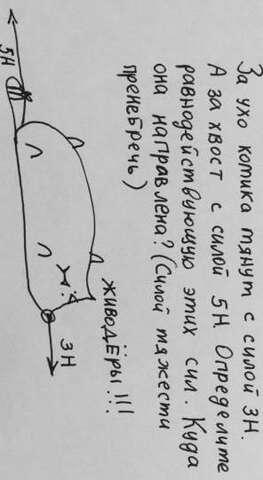 За ухо котика тянут с силой 3Н.
А за хвост с силой 5Н. Определите
равнодействующую этих сил. Куда
она направлена? (Силой тяжести
пренебречь)
ЖИВОДЁРЫ !!!
5Н
3Н